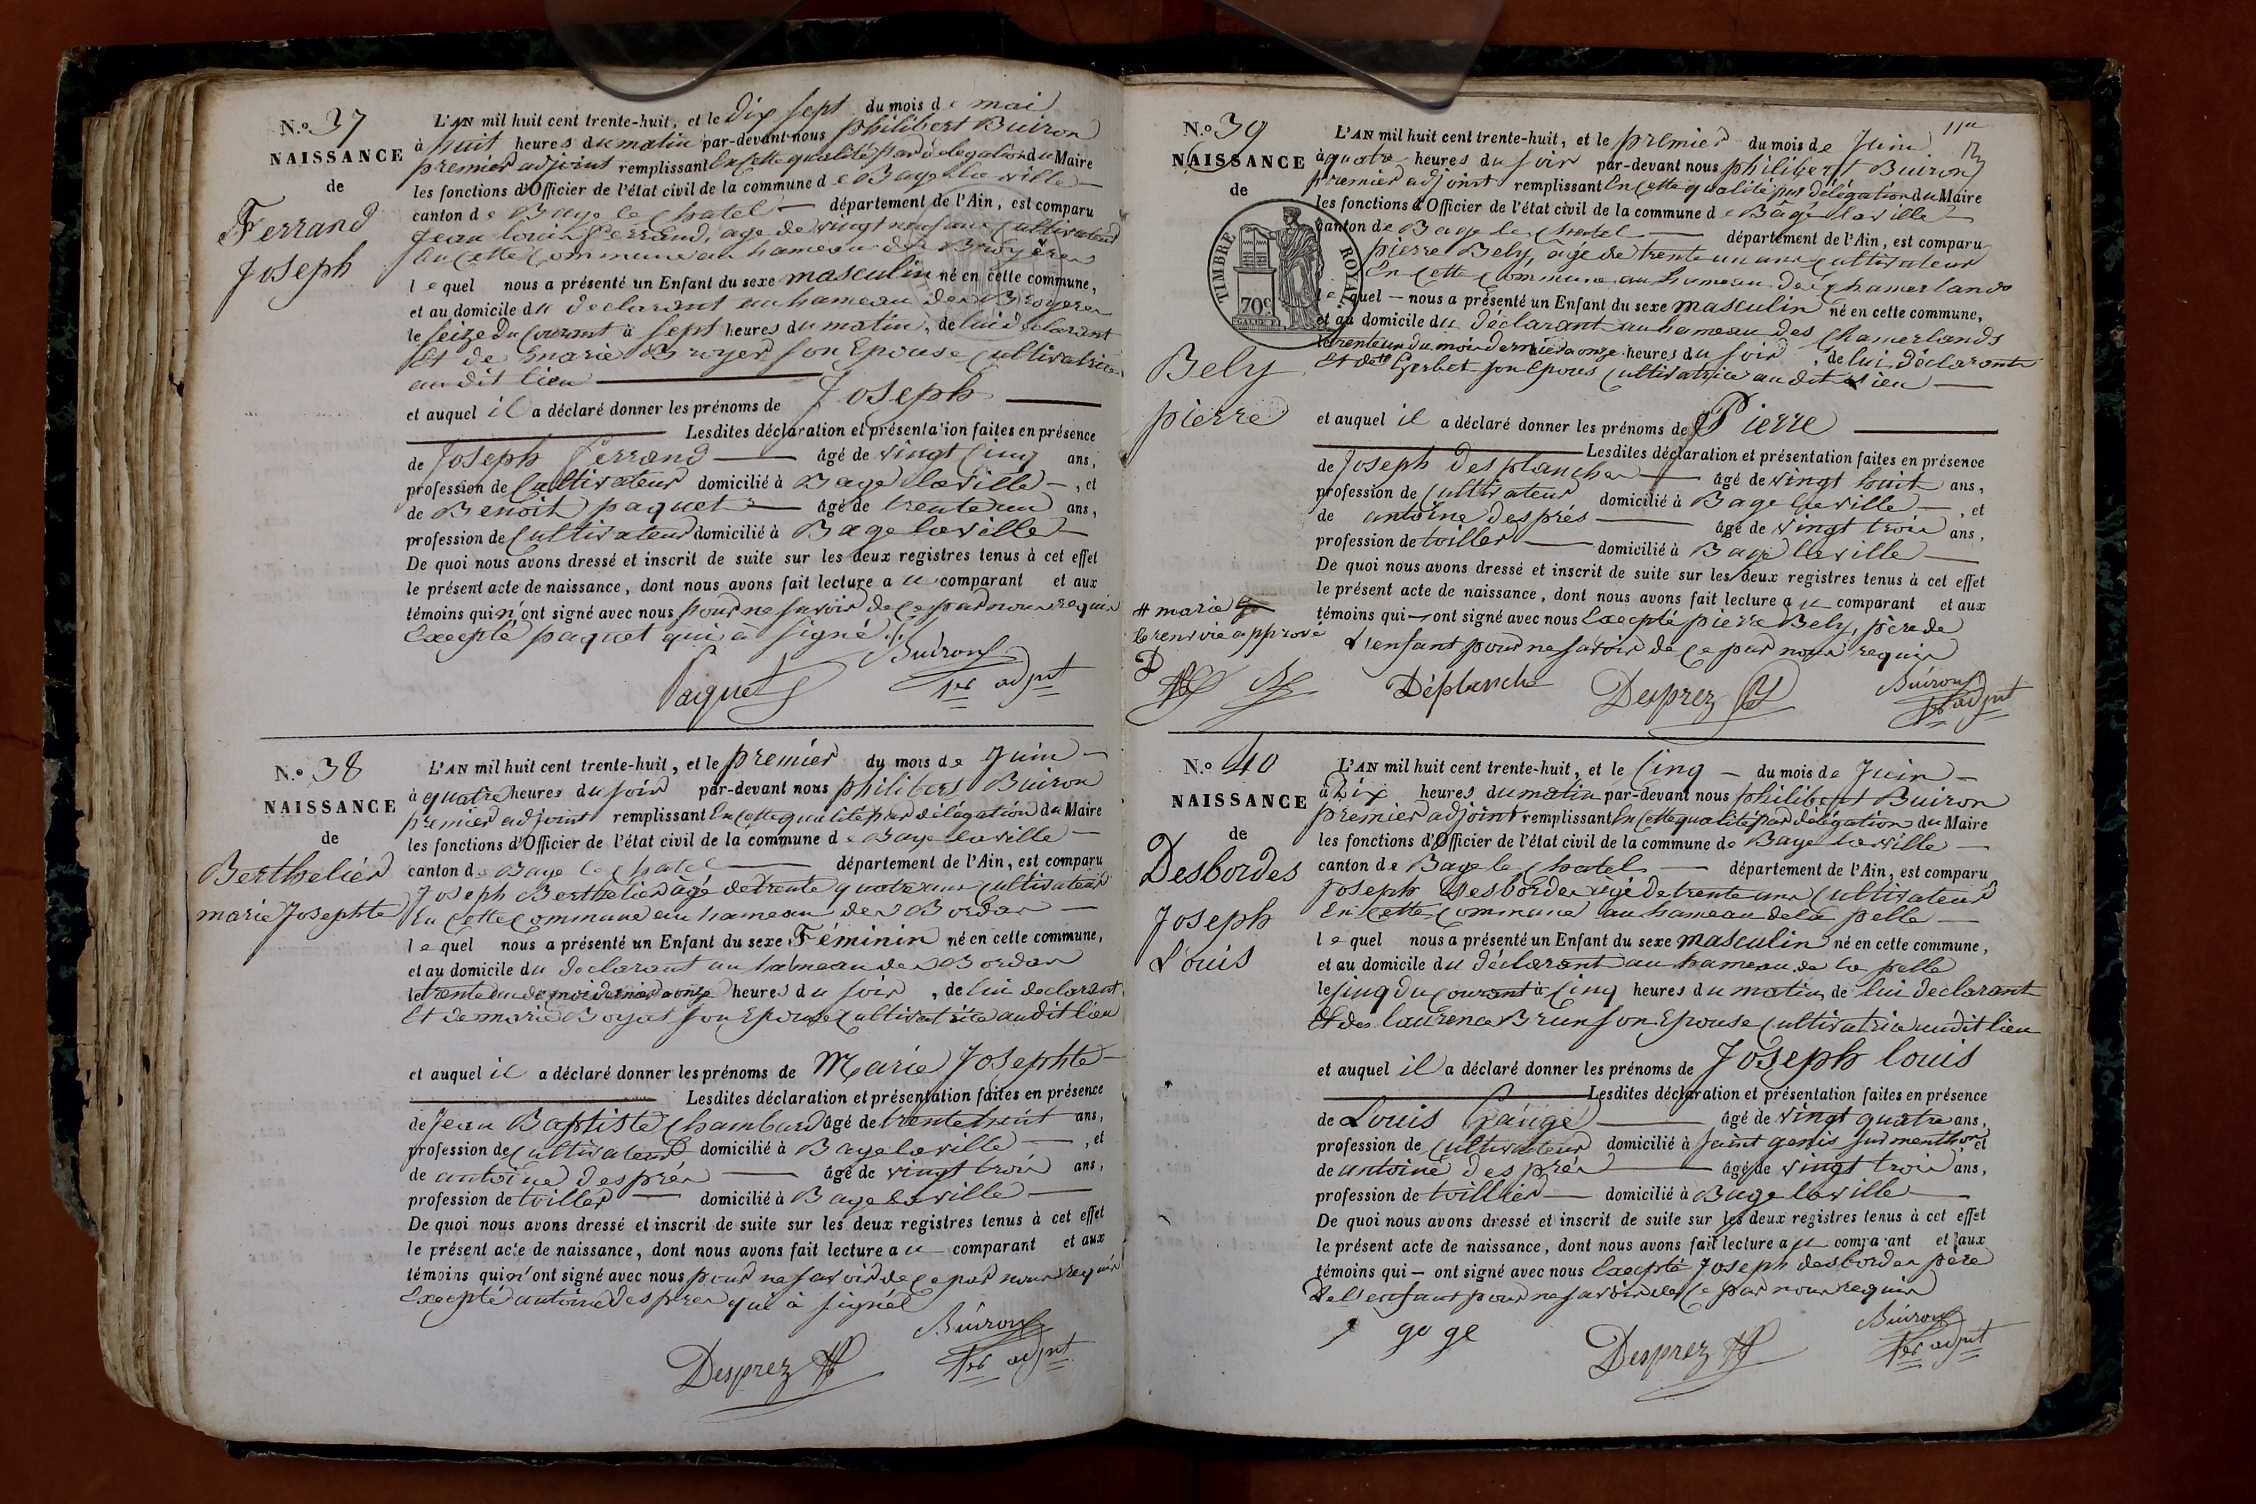 N.º 37
NAISSANCE
de
Ferrand
Joseph
L'AN mil huit cent trente-huit, et le dix sept du mois de mai
à huit heures du matin par-devant nous philibert Buiron
premier adjoint remplissant En cette qualité par délégation du Maire
les fonctions d'Officier de l'état civil de la commune de Bagé la ville
canton de Bage le Chatel département de l'Ain, est comparu
Jean louis ferrand, age de vingt neuf ans Cultivateur
En cette Commune au hameau des Broyères
lequel nous a présenté un Enfant du sexe masculin né en cette commune,
et au domicile du declarant au hameau des Broyeres
le seize du Courant à sept heures du matin, de lui declarant
Et de marie Broyer son Epouse Cultivatrice
au dit lieu
et auquel il a déclaré donner les prénoms de Joseph
Lesdites déclaration et présentation faites en présence
de Joseph ferrand âgé de vingt Cinq ans,
profession de Cultivateur domicilié à Bage laville, et
de Benoit paquet âgé de trente un ans,
profession de Cultivateur domicilié à Bage laville
De quoi nous avons dressé et inscrit de suite sur les deux registres tenus à cet effet
le présent acte de naissance, dont nous avons fait lecture au comparant et aux
témoins qui n'ont signé avec nous pour ne savoir de ce par nous requis
Excepté paquet qui à signé
Paquet Buiron
1er adjnt
N.º 38
NAISSANCE
de
Berthelier
marie Josephte
L'AN mil huit cent trente-huit, et le premier du mois de Juin
à quatre heures du soir par-devant nous philibert Buiron
premier adjoint remplissant En cette qualité par délégation du Maire
les fonctions d'Officier de l'état civil de la commune de Bage laville
canton de Bage le Chatel département de l'Ain, est comparu
Joseph Berthelier agé de trente quatre ans Cultivateur
En Cette Commune au hameau des Bordes
lequel nous a présenté un Enfant du sexe Féminin né en cette commune,
et au domicile du declarant au hameau des Bordes
le trente un du mois dernier a onze heures du soir, de lui declarant
Et de marie Boyat son Epouse Cultivatrice au dit lieu
et auquel il a déclaré donner les prénoms de Marie Josephte
Lesdites déclaration et présentation faites en présence
de Jean Baptiste Chambard âgé de trente huit ans,
profession de Cultivateur domicilié à Bage laville, et
de antoine després âgé de vingt trois ans,
profession de toiller domicilié à Bage laville
De quoi nous avons dressé et inscrit de suite sur les deux registres tenus à cet effet
le présent acte de naissance, dont nous avons fait lecture au comparant et aux
témoins qui n'ont signé avec nous pour ne savoir de ce par nous requis
Excepté antoine despres qui à signé
Desprez Buiron
1er adjnt
11e
N.º 39
NAISSANCE
de
TIMBRE ROYAL
70 c.
Bely
pierre
L'AN mil huit cent trente-huit, et le premier du mois de Juin
à quatre heures du soir par-devant nous philibert Buiron
premier adjoint remplissant En cette qualité par délégation du Maire
les fonctions d'Officier de l'état civil de la commune de Bâgé laville
canton de Bage le Chatel département de l'Ain, est comparu
pierre Bely, âgé de trente un ans Cultivateur
En cette Commune au hameau des Chamerlands
lequel nous a présenté un Enfant du sexe masculin né en cette commune,
et au domicile du déclarant au hameau des Chamerlands
le trente un du mois dernier a onze heures du soir, de lui déclarant
Et de # Gerbet son Epouse Cultivatrice au dit lieu
et auquel il a déclaré donner les prénoms de Pierre
Lesdites déclaration et présentation faites en présence
de Joseph desplanches âgé de vingt huit ans,
profession de Cultivateur domicilié à Bage laville, et
de antoine després âgé de vingt trois ans,
profession de toiller domicilié à Bagé laville
De quoi nous avons dressé et inscrit de suite sur les deux registres tenus à cet effet
le présent acte de naissance, dont nous avons fait lecture au comparant et aux
témoins qui ont signé avec nous Excepté pierre Bely, père de
L'enfant pour ne savoir de ce par nous requis
# marie
le renvoie approuvé
Déplanche Desprez Buiron
1er adjnt
N.º 40
NAISSANCE
de
Desbordes
Joseph
Louis
L'AN mil huit cent trente-huit, et le Cinq du mois de Juin
à Dix heures du matin par-devant nous philibert Buiron
premier adjoint remplissant En cette qualité par délégation du Maire
les fonctions d'Officier de l'état civil de la commune de Bage laville
canton de Bage le Chatel département de l'Ain, est comparu
Joseph Desbordes agé de trente ans Cultivateur
En Cette Commune au hameau de la pelle
lequel nous a présenté un Enfant du sexe masculin né en cette commune,
et au domicile du déclarant au hameau de la pelle
le cinq du courant à Cinq heures du matin, de lui declarant
Et de laurence Brun son Epouse Cultivatrice au dit lieu
et auquel il a déclaré donner les prénoms de Joseph louis
Lesdites déclaration et présentation faites en présence
de Louis Gauge âgé de vingt quatre ans,
profession de Cultivateur domicilié à saint genis sur menthon et
de antoine després âgé de vingt trois ans,
profession de toillier domicilié à Bage laville
De quoi nous avons dressé et inscrit de suite sur les deux registres tenus à cet effet
le présent acte de naissance, dont nous avons fait lecture au comparant et aux
témoins qui ont signé avec nous Excepté Joseph desbordes père
De l'enfant pour ne savoir de ce par nous requis
goge Desprez Buiron
1er adjnt